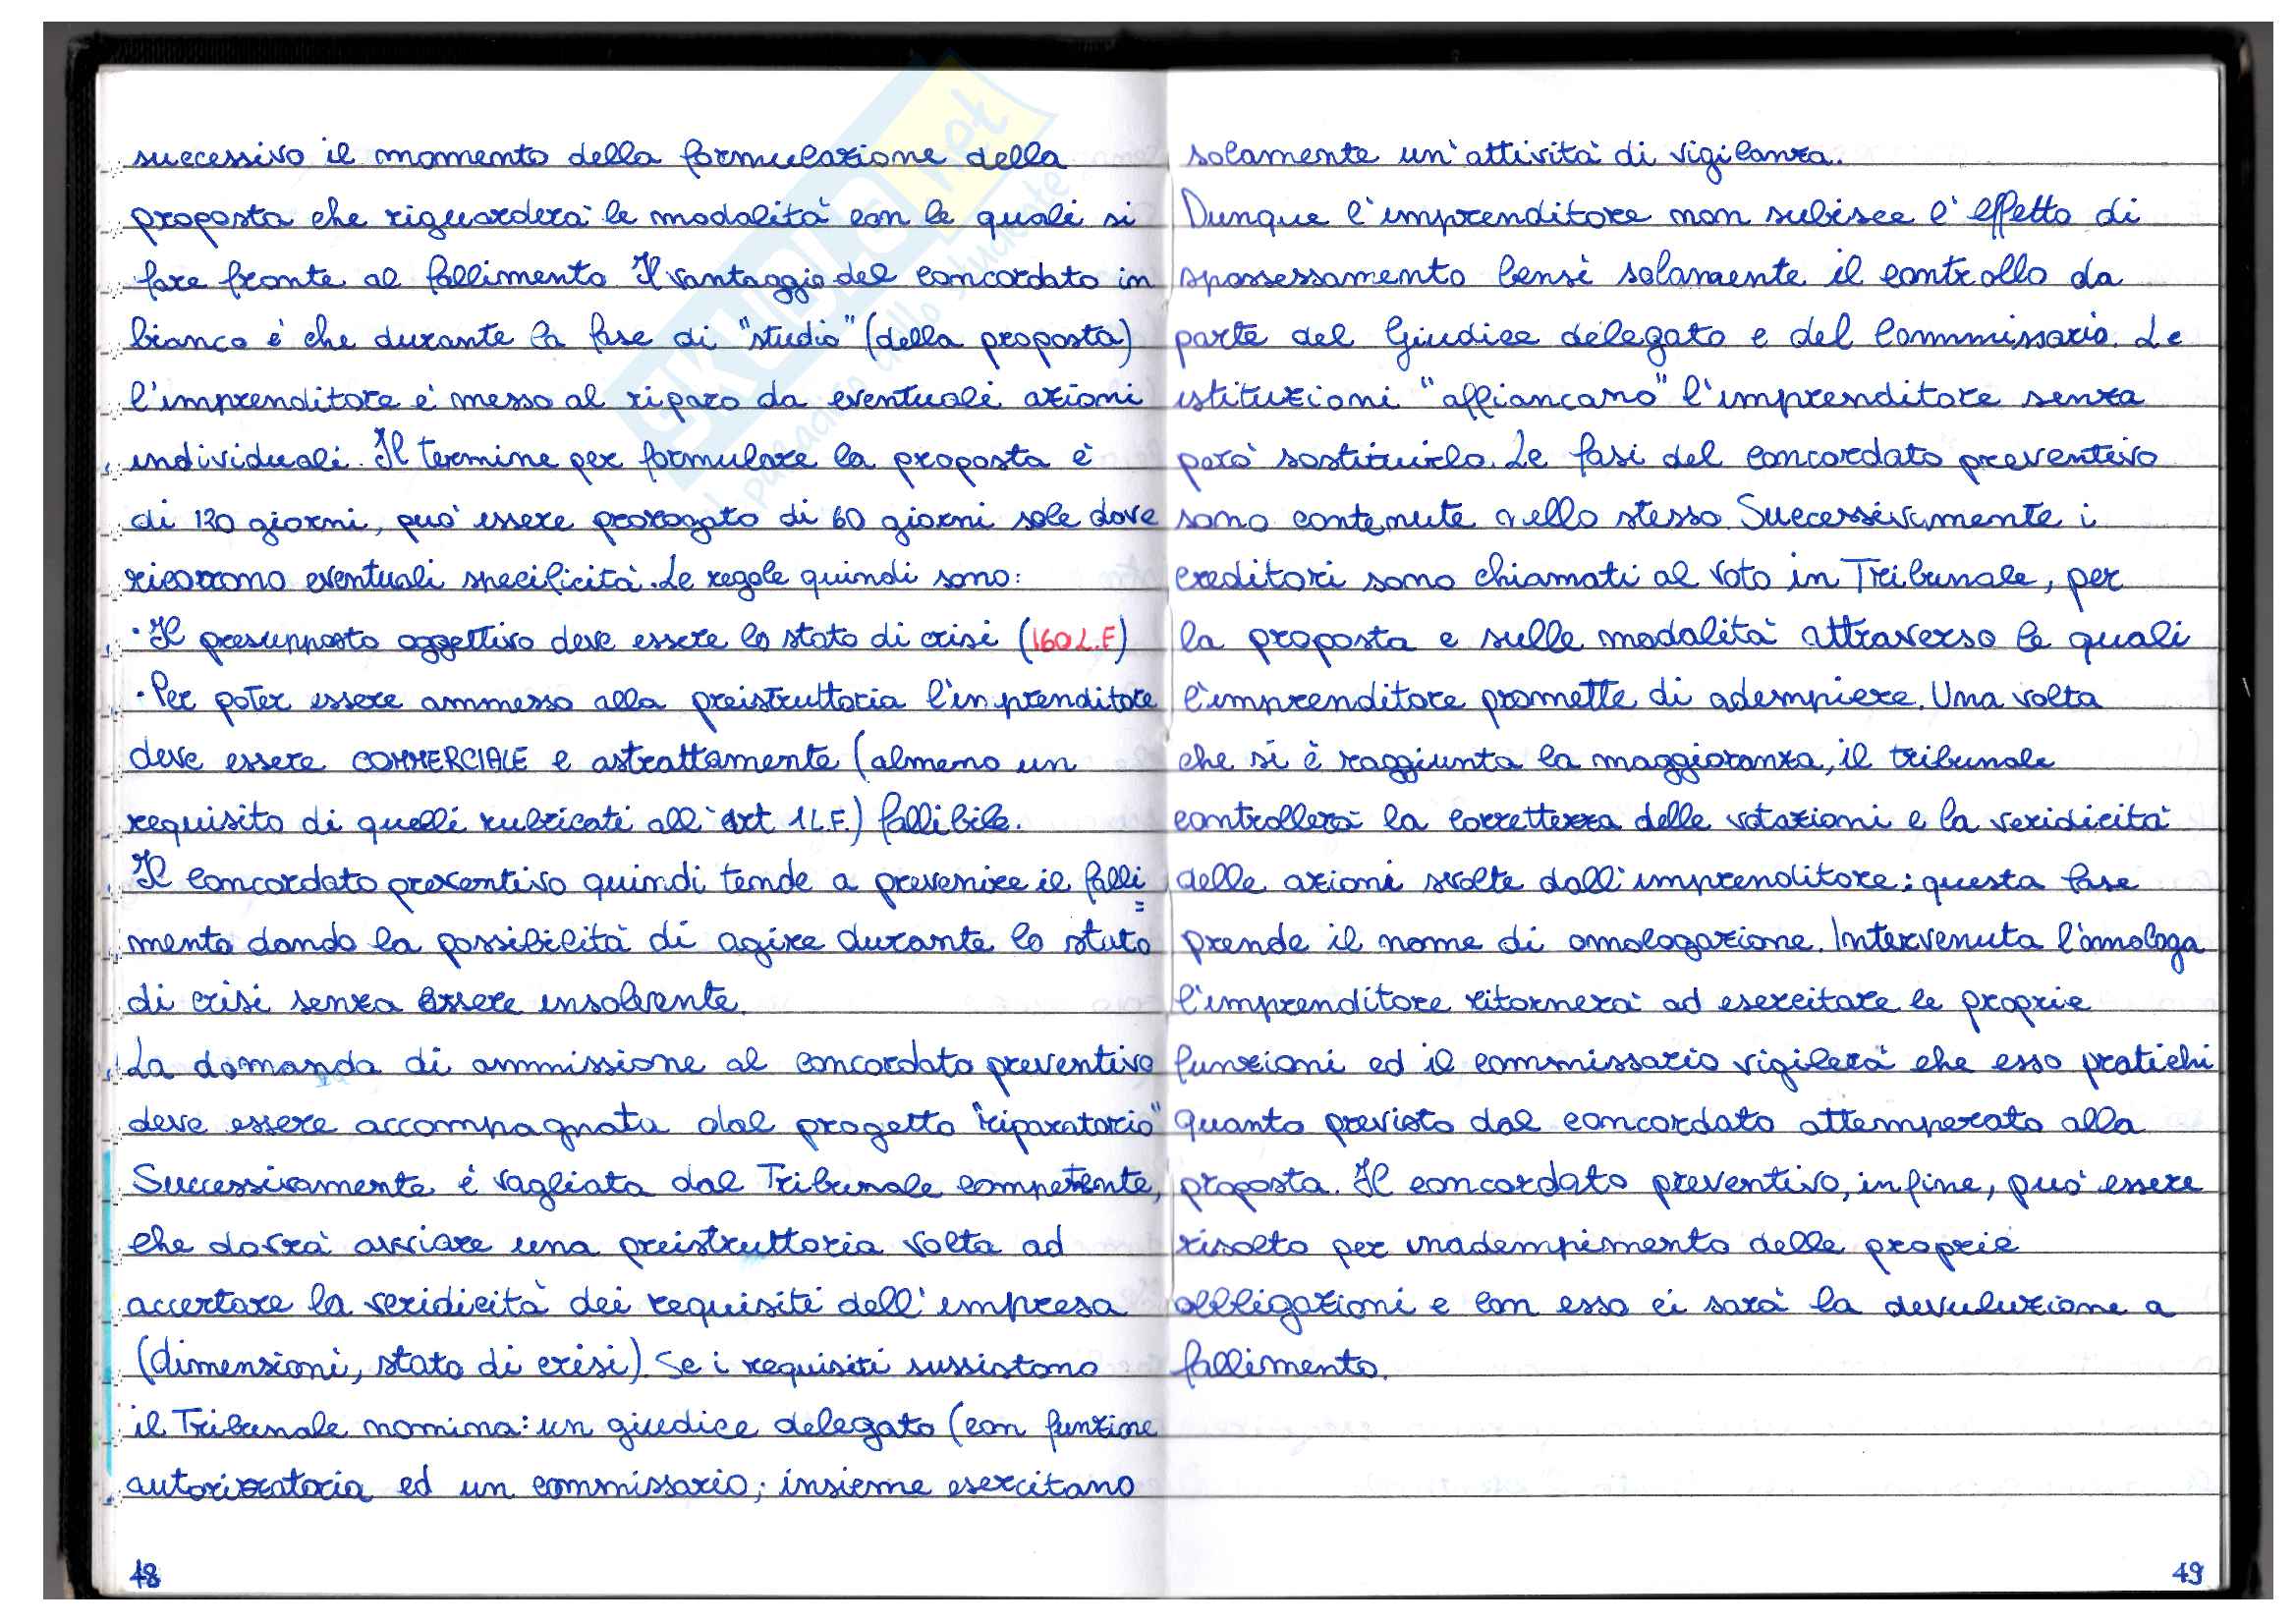 successivo il momento della formulazione della
proposta che riguarderà le modalità con le quali si
fare fronte al fallimento. Il vantaggio del concordato in
bianco è che durante la fase di "studio" (della proposta)
l'imprenditore è messo al riparo da eventuali azioni
individuali. Il termine per formulare la proposta è
di 120 giorni, può essere prorogato di 60 giorni sole dove
ricorrono eventuali specificità. Le regole quindi sono:
• Il presupposto oggettivo deve essere lo stato di crisi (160 L.F)
• Per poter essere ammesso alla preistruttoria l'imprenditore
deve essere COMMERCIALE e astrattamente (almeno un
requisito di quelli rubricati all'art 1 L.F.) fallibile.
Il concordato preventivo quindi tende a prevenire il falli=
mento dando la possibilità di agire durante lo stato
di crisi senza essere insolvente.
La domanda di ammissione al concordato preventivo
deve essere accompagnata dal progetto "riparatorio"
Successivamente è vagliata dal Tribunale competente,
che dovrà avviare una preistruttoria volta ad
accertare la veridicità dei requisiti dell'impresa
(dimensioni, stato di crisi). Se i requisiti sussistono
il Tribunale nomina: un giudice delegato (con funzione
autorizzatoria ed un commissario; insieme esercitano
48
solamente un'attività di vigilanza.
Dunque l'imprenditore non subisce l'effetto di
spossessamento bensì solamente il controllo da
parte del Giudice delegato e del Commmissario. Le
istituzioni "affiancano" l'imprenditore senza
però sostituirlo. Le fasi del concordato preventivo
sono contenute nello stesso. Successivamente i
creditori sono chiamati al voto in Tribunale, per
la proposta e sulle modalità attraverso le quali
l'imprenditore promette di adempiere. Una volta
che si è raggiunta la maggioranza, il tribunale
controllerà la correttezza delle votazioni e la veridicità
delle azioni svolte dall'imprenditore: questa fase
prende il nome di omologazione. Intervenuta l'omologa
l'imprenditore ritornerà ad esercitare le proprie
funzioni ed il commissario vigilerà che esso pratichi
quanto previsto dal concordato attemperato alla
proposta. Il concordato preventivo, infine, può essere
risolto per inadempimento delle proprie
obbligazioni e con esso ci sarà la devuluzione a
fallimento.
49
SKUOLA.net
il paradiso dello studente